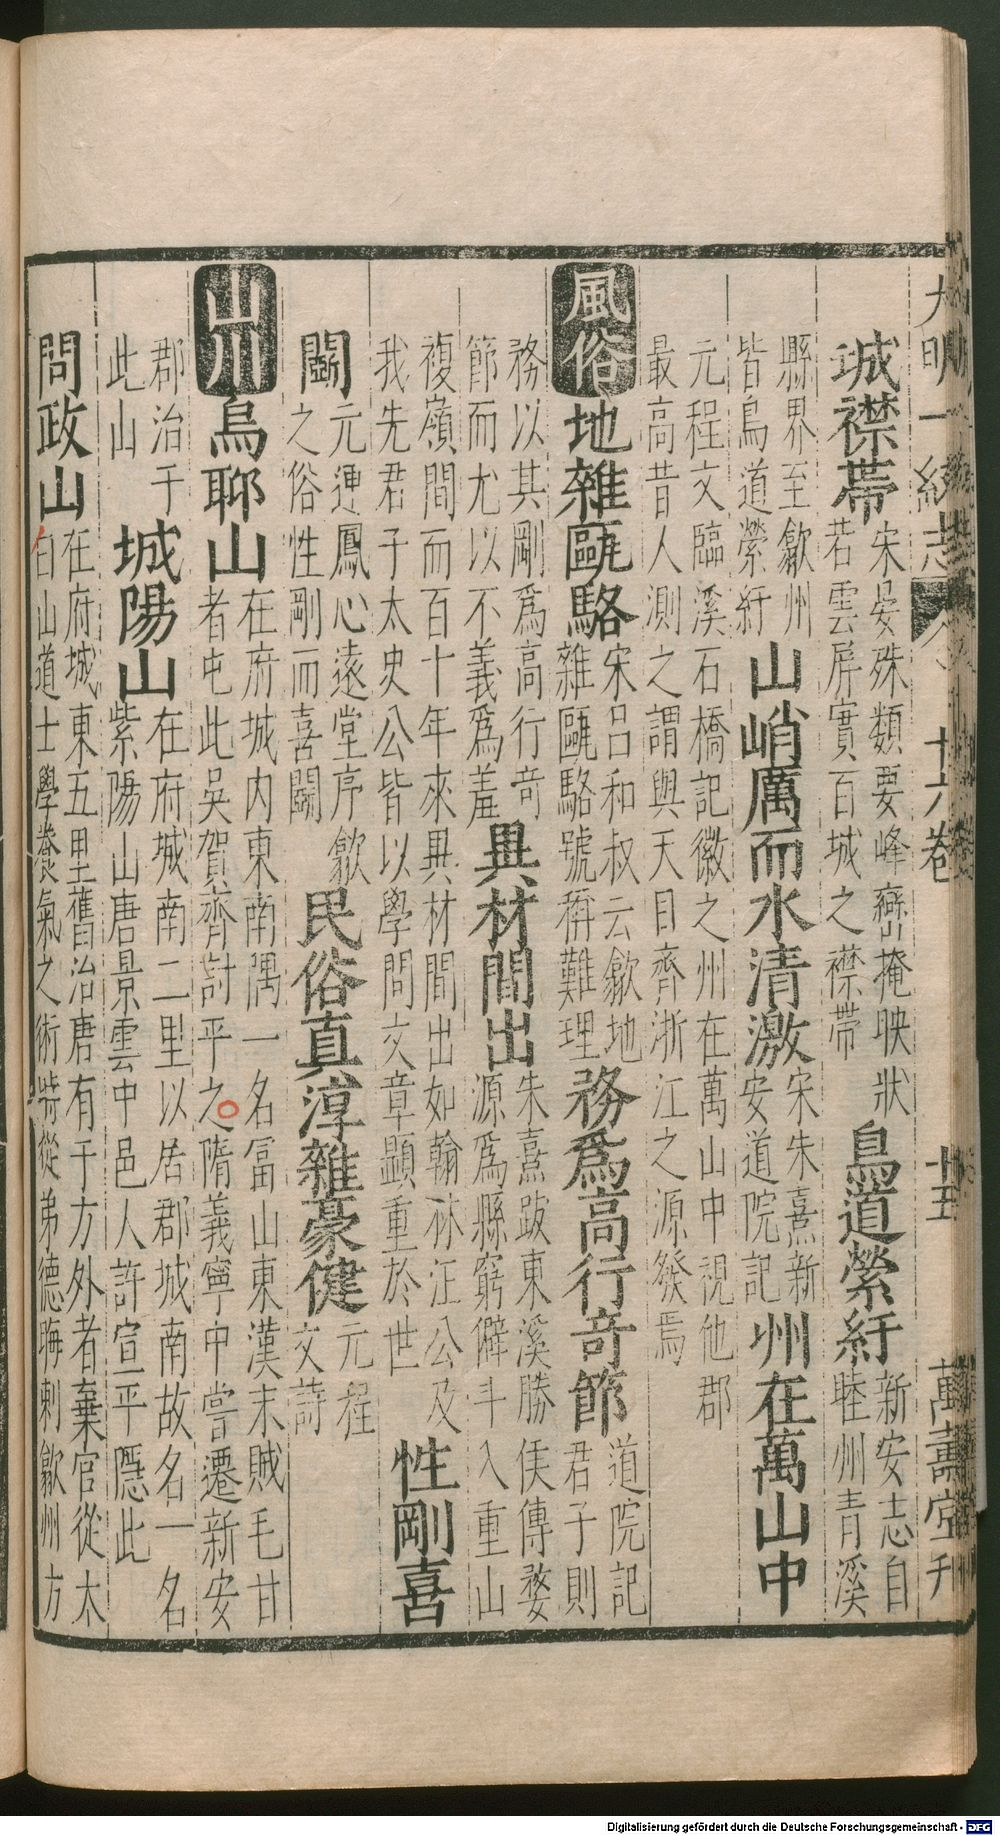 大明一統志 卷十六 十五 萬壽堂刊
城襟帶 宋晏殊類要峰巒掩映狀若雲屏實百城之襟帶 鳥道縈紆 新安志自睦州青溪
縣界至歙州皆鳥道縈紆 山峭厲而水清激 宋朱熹新安道院記 州在萬山中
元程文臨溪石橋記徽之州在萬山中視他郡最高昔人測之謂與天目齊浙江之源發焉
風俗 地雜甌駱 宋呂和叔云歙地雜甌駱號稱難理 務爲高行奇節 道院記君子則
務以其剛爲高行奇節而尤以不義爲羞 異材間出 朱熹跋東溪勝侯傳婺源爲縣窮僻斗入重山
複嶺間而百十年來異材間出如翰林汪公及我先君子太史公皆以學問文章顯重於世 性剛喜
鬭 元運鳳心遠堂序歙之俗性剛而喜鬭 民俗真淳雜豪健 元程文詩
山川 烏聊山 在府城内東南隅一名富山東漢末賊毛甘者屯此吳賀齊討平之隋義寧中嘗遷新安
郡治于此山 城陽山 在府城南二里以居郡城南故名一名紫陽山唐景雲中邑人許宣平隱此
問政山 在府城東五里舊治唐有于方外者棄官從太白山道士學養氣之術時從弟德晦刺歙州方
Digitalisierung gefördert durch die Deutsche Forschungsgemeinschaft - DFG